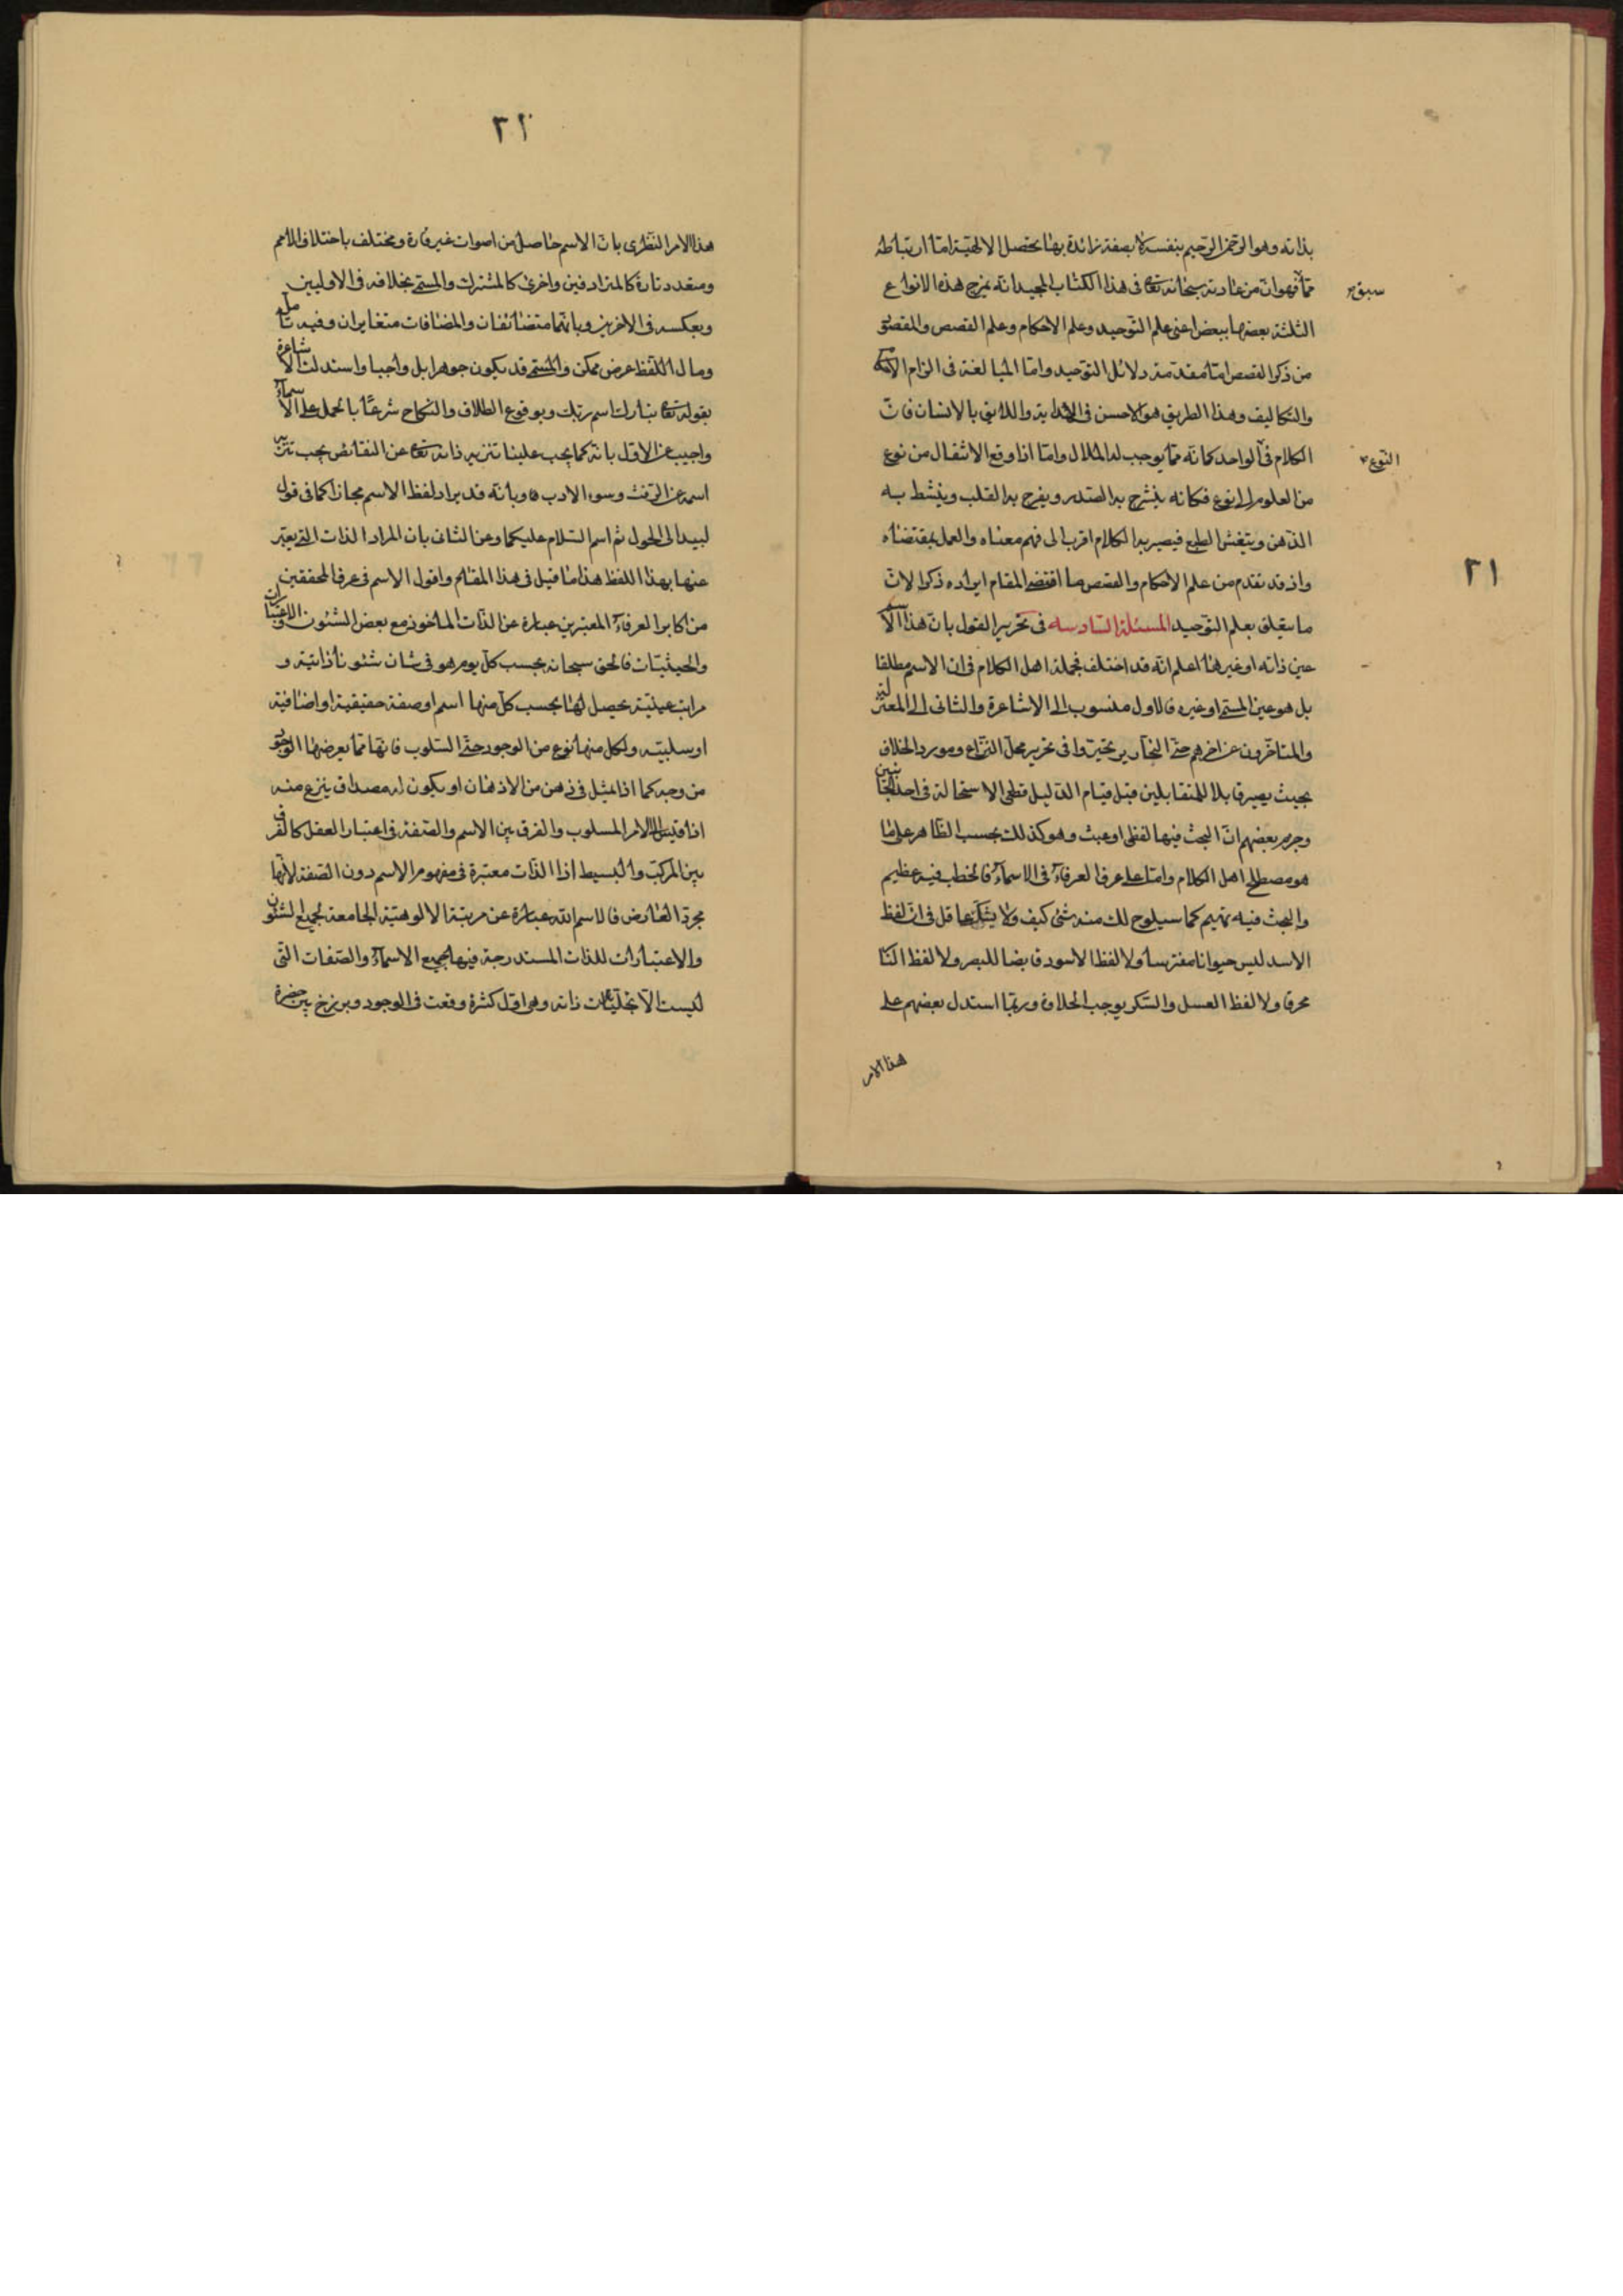 بذاته وهو الرحمن الرحيم بنفسه لا بصفة زائدة بها تحصل الالهية اما ارتباطه
سبق
مما فهو ان من عادته سبحانه تعا فى هذا الكتاب المجيد انه يمزج هذه الانواع
الثلثة بعضها ببعض اعنى علم التوحيد وعلم الاحكام وعلم القصص والمقصود
من ذكر القصص اما مقدمة دلائل التوحيد واما المبالغة فى الزام الاحكام
والتكاليف وهذا الطريق هو الاحسن فى الهداية واللايق بالانسان فان
النوع
الكلام فى الواحد كانه مما يوجب له الملال واما اذا وقع الانتقال من نوع
من العلوم الى نوع فكانه ينشرح به الصدر ويفرح به القلب وينشط به
الذهن وينتعش الطبع فيصير به الكلام اقرب الى فهم معناه والعمل بمقتضاه
٢١
واذ قد تقدم من علم الاحكام والقصص ما اقتضى المقام ايراده ذكر الان
ما يتعلق بعلم التوحيد المسئلة السادسة فى تحرير القول بان هذا الاسم
عين ذاته او غيرها اعلم انه قد اختلف فجملة اهل الكلام فى ان الاسم مطلقا
بل هو عين المسمى او غيره فالاول منسوب الى الاشاعرة والثانى الى المعتزلة
والمتاخرون عن اخرهم حتى النحارير تحيروا فى تحرير محل النزاع ومورد الخلاف
بحيث يصير قابلا للمتقابلين قبل قيام الدليل قطعى الاستحالة فى احد الجانبين
وجزم بعضهم ان البحث فيها لفظى او عبث وهو كذلك بحسب الظاهر على ما
هو مصطلح اهل الكلام واما على عرف العرفاء فى الاسماء فالخطب فيه عظيم
والبحث فيه تهيم كما سيلوح لك منه شئ كيف ولا يشك عاقل فى ان لفظ
الاسد ليس حيوانا مفترسا ولا لفظ الاسود قابضا للبصر ولا لفظ النا
محرقا ولا لفظ العسل والسكر يوجب الحلاوة وربما استدل بعضهم على
هذا الامر
٢٢
هذا الامر النظرى بان الاسم حاصل من اصوات غير قارة ومختلف باختلاف الامم
ومتعدد تارة كالمترادفين واخرى كالمشترك والمسمى بخلافه فى الاوليين
وبعكسه فى الاخريين وبانهما متضائفان والمضافات متغايران وفيه تامل
ومال اللفظ عرض ممكن والمسمى قد يكون جوهرا بل واجبا واستدلت الاشاعرة
بقوله تعا تبارك اسم ربك وبوقوع الطلاق والنكاح شرعًا بالحمل على الاسماء
واجيب عن الاول بانه كما يجب علينا تنزيه ذاته تعا عن النقائص يجب تنزيه
اسمه عن الرفث وسوء الادب وبانه قد يراد لفظ الاسم مجازا كما فى قول
لبيد الى الحول ثم اسم السلام عليكما وعن الثانى بان المراد الذات التى يعبر
عنها بهذا اللفظ هذا ما قيل فى هذا المقام واقول الاسم فى عرف المحققين
من اكابر العرفاء المعتبرين عبارة عن الذات الماخوذ مع بعض الشئون والاعتبارات
والحيثيات فالحق سبحانه بحسب كل يوم هو فى شان شئونا ذاتية و
مراتب عينية يحصل لها بحسب كل منها اسم او صفة حقيقية او اضافية
او سلبية ولكل منها نوع من الوجود حتى السلوب فانها مما يعرضها الوجود
من وجه كما اذا تمثل فى ذهن من الاذهان او يكون له مصداق ينزع منه
اذا قيس الى الامر المسلوب والفرق بين الاسم والصفة فى اعتبار العقل كالفرق
بين المركب والبسيط اذ الذات معتبرة فى مفهوم الاسم دون الصفة لانها
مجرد العارض فالاسم الله عبارة عن مرتبة الالوهية الجامعة لجميع الشئون
والاعتبارات للذات المستدرجة فيها جميع الاسماء والصفات التى
ليست الا تجليات ذاته وهى اول كثرة وقعت فى الوجود وبرزخ بين حضرة